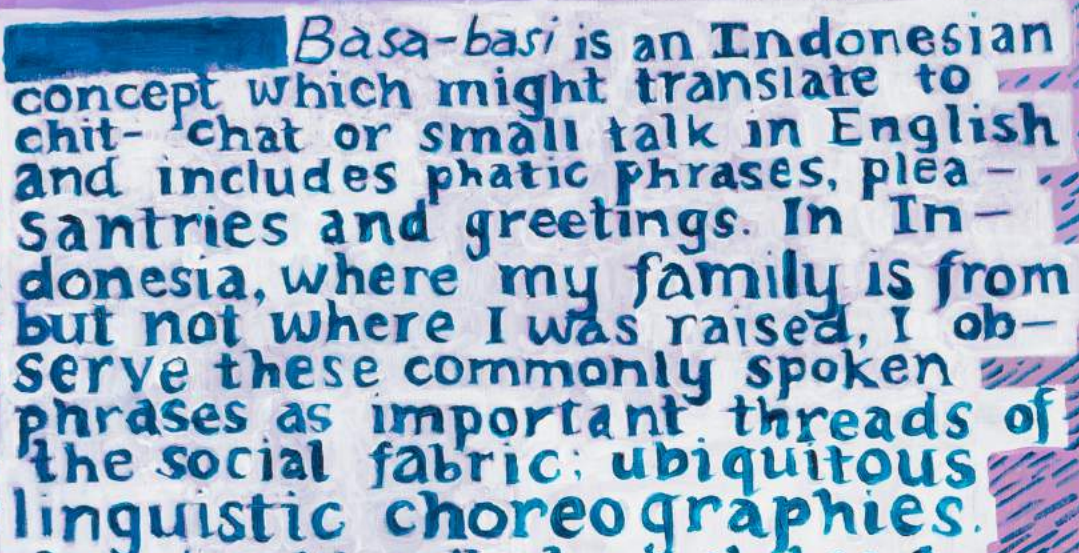 Basa-basi is an Indonesian
concept which might translate to
chit- chat or small talk in English
and includes phatic phrases, plea-
santries and greetings. In In-
donesia, where my family is from
but not where I was raised, I ob-
serve these commonly spoken
phrases as important threads of
the social fabric; ubiquitous
linguistic choreographies.